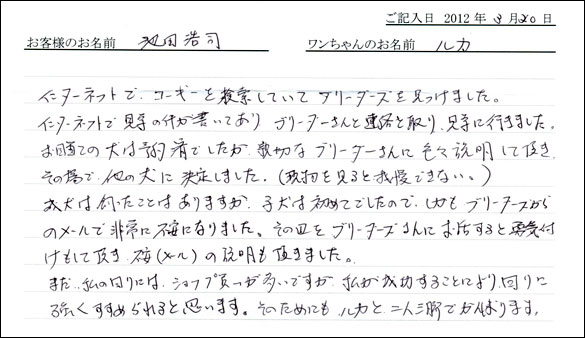 ご記入日 2012年3月20日
お客様のお名前 池田浩司 ワンちゃんのお名前 ルカ
インターネットで、コーギーを検索していてブリーダーズを見つけました。
インターネットで見学の件が書いてあり ブリーダーさんと連絡を取り、見学に行きました。
お目当ての犬は予約済でしたが、親切なブリーダーさんに色々説明して頂き、
その場で、他の犬に決定しました。(実物を見ると我慢できない。)
成犬は飼ったことはありますが、子犬は初めてでしたので、しかもブリーダーズから
のメールで非常に不安になりました。その旨をブリーダーズさんにお話すると勇気付
けもして頂き 不安(メール)の説明も頂きました。
まだ、私の回りには、ショップ買いが多いですが、私が成功することにより、回りに
強くすすめられると思います。そのためにも ルカと二人三脚でがんばります。